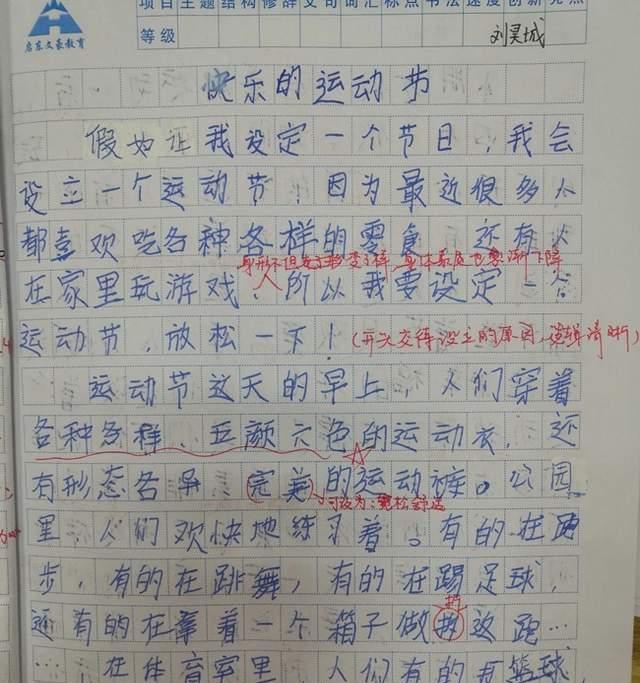 项目主题结构修辞文句词汇标点书法速度创新亮点
启东文豪教育
等级
刘昊城
快乐的运动节
假如让我设定一个节日，我会
设立一个运动节！因为最近很多人
都喜欢吃各种各样的零食，还有人
身体素质也逐渐下降
在家里玩游戏，所以我要设定一个
人
运动节，放松一下！
(开头交待设立的原因，逻辑清晰)
运动节这天的早上，人们穿着
各种各样、五颜六色的运动衣，还
有形态各异、完美的运动裤。公园
可改为：宽松舒适
里，人们欢快地练习着。有的在跑
步，有的在跳舞，有的在踢足球，
还有的在拿着一个箱子做折返跑…
折
…在体育室里，人们有的打篮球，